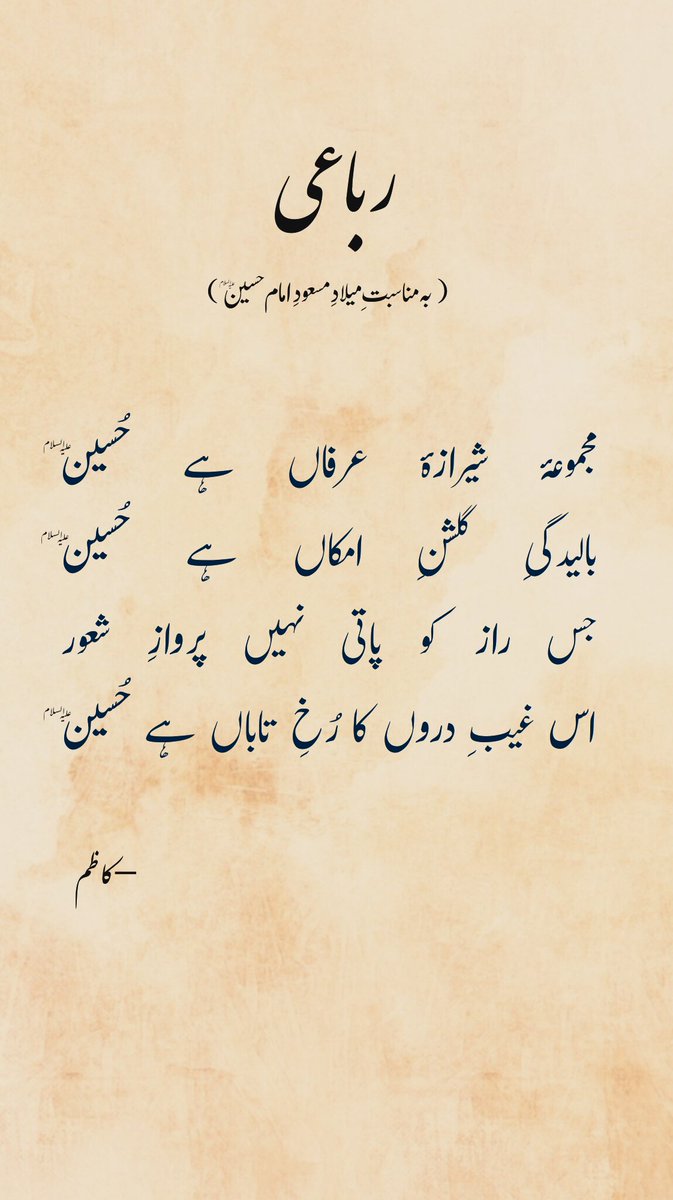 رباعی
( بہ مناسبتِ میلادِ مسعودِ امام حسینؑ )
مجموعۂ شیرازۂ عرفاں ہے حُسین علیہ السلام
بالیدگیِ گلشنِ امکاں ہے حُسین علیہ السلام
جس راز کو پاتی نہیں پروازِ شعور
اس غیبِ دروں کا رُخِ تاباں ہے حُسین علیہ السلام
—کاظم